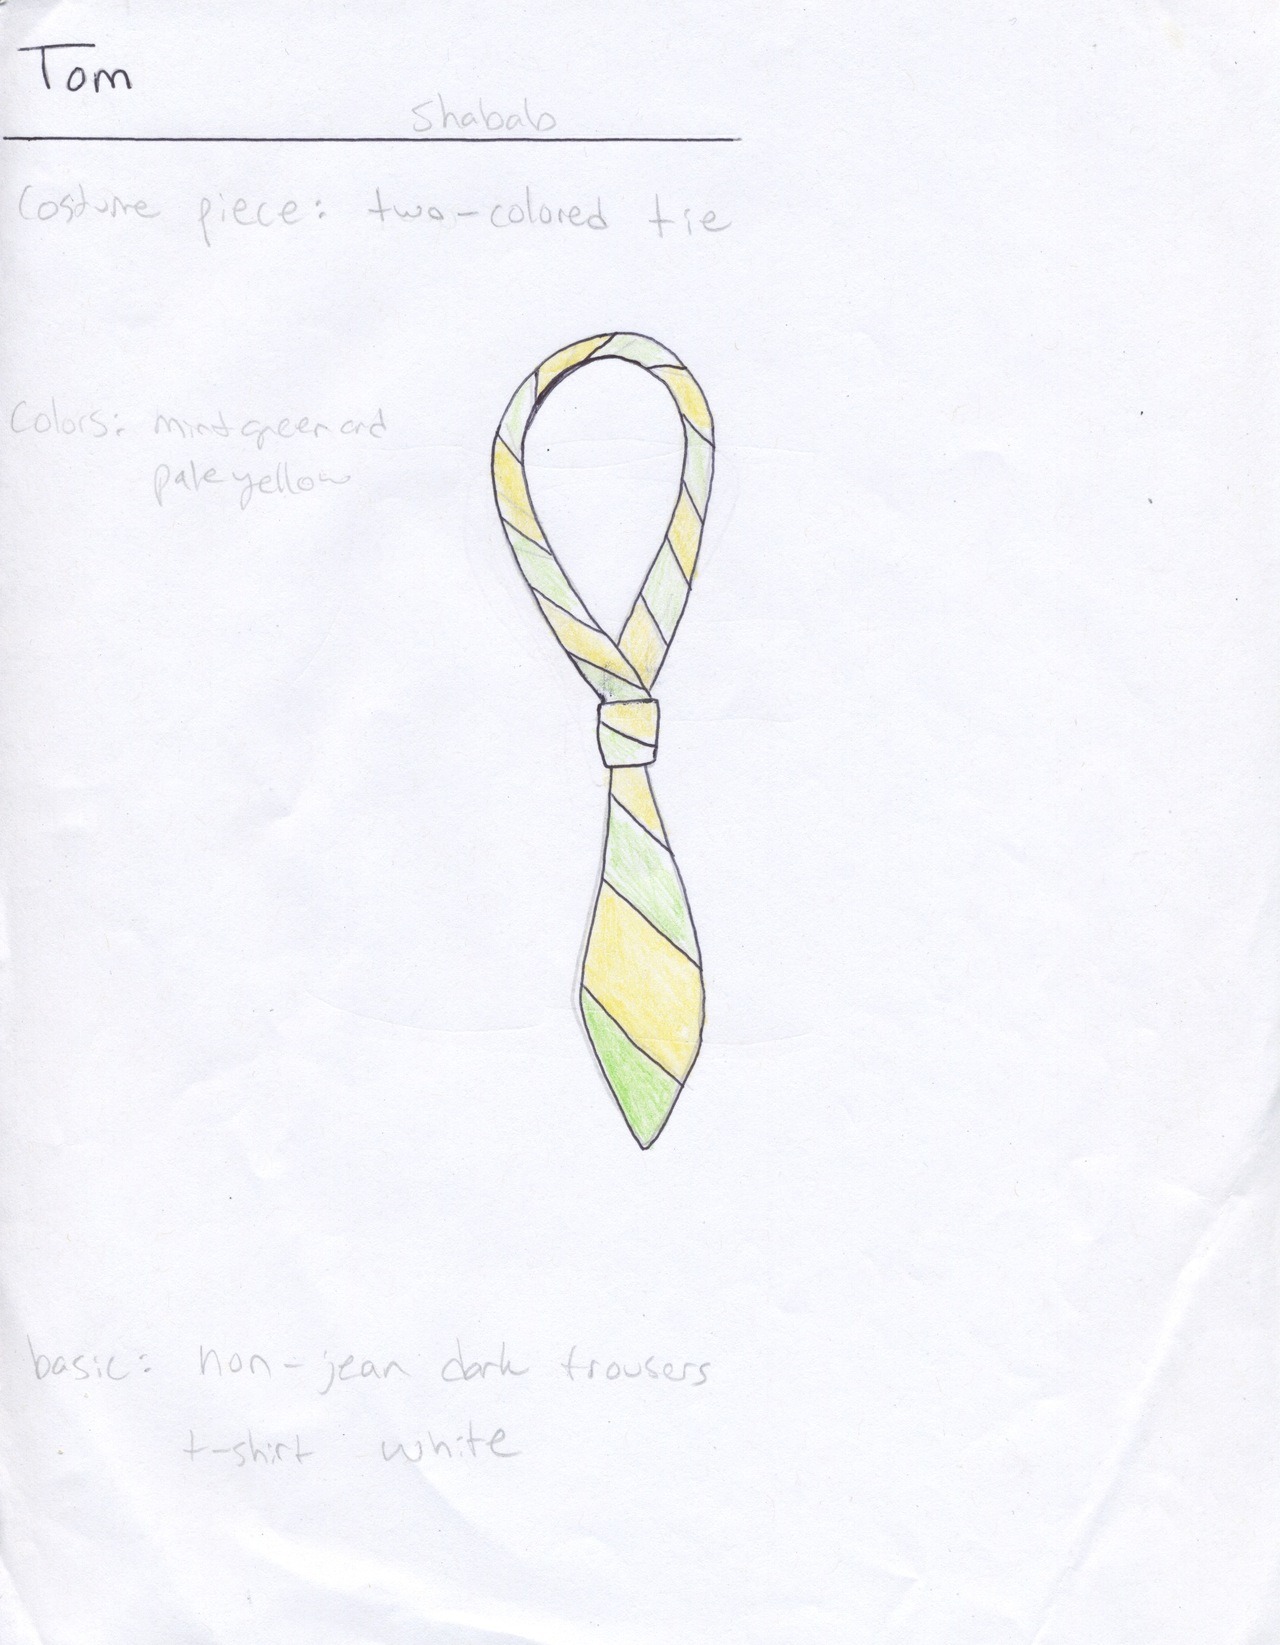 Tom
Shabab
Costume piece: two-colored tie
Colors: mint green and
pale yellow
basic: non-jean dark trousers
t-shirt white